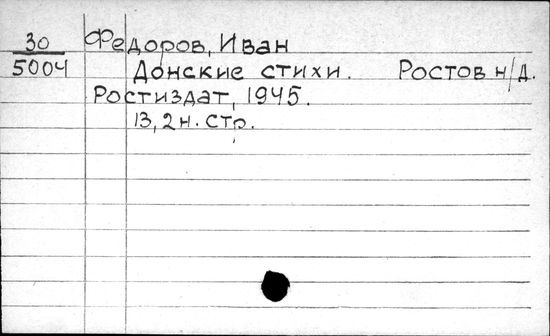 30 Федоров, Иван
5004 Донские стихи. Ростов н/Д.
Ростиздат, 1945.
13, 2 н. стр.